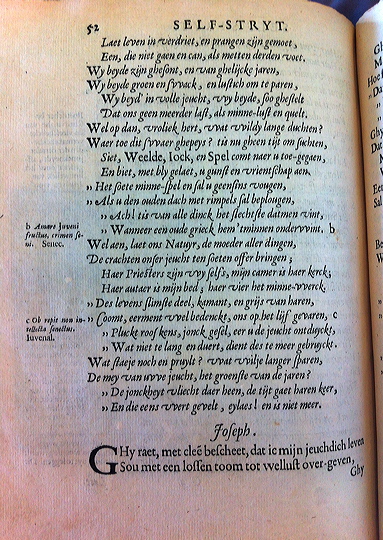 52 SELF-STRYT.
Laet leven in verdriet, en prangen zijn gemoet,
Een, die niet gaen en can, als metten derden voet.
Wy beyde zijn ghesont, en van ghelijcke jaren,
Wy beyde groen en swack, en lustich om te paren,
Wy beyd' in volle jeucht, wy beyde, soo ghestelt
Dat ons geen meerder last, als minne-lust en quelt.
Wel op dan, vroliker hert, wat wildy lange duchten?
Waer toe dit swaer ghepeys? tis nu gheen tijt om suchten,
Siet, Weelde, Iock, en Spel comt naer u toe-gegaen,
En biet, met bly gelaet, u gunst en vrientschap aen.
„ Het soete minne-spel en sal u geensins vougen,
„ Als u den ouden dach met rimpels sal beplougen,
„ Ach! tis van alle dinck het slechtste datmen vint,
„ Wanneer een oude grieck hem tminnen onderwint. b
b Amare Juveni
fructus, crimen se-
ni. Senec.
Wel aen, laet ons Natuyr, de moeder aller dingen,
De crachten onser jeucht ten soeten offer bringen;
Haer Priesters zijn wy selfs, mijn camer is haer kerck;
Haer autaer is mijn bed; haer vier het minne-werck.
„ Des levens slimste deel, kamant, en grijs van haren,
„ Coomt, eerment wel bedenckt, ons op het lijf gevaren, c
c Ob repit non in-
tellecta senectus.
Iuvenal.
„ Pluckt roosl kens, jonck gesel, eer u de jeucht ontduyckt,
„ Wat niet te lang en duert, dient des te meer gebruyckt.
Wat staeje noch en pruylt? wat wilje langer sparen,
De mey van uwe jeucht, het groenste van de jaren?
„ De jonckheyt vliecht daer heen, de tijt gaet haren keer,
„ En die eens wert gevelt, eylaes! en is niet meer.
Joseph.
GHy raet, met cleē bescheet, dat ic mijn jeuchdich leven
Sou met een lossen toom tot wellust over-geven,
Ghy